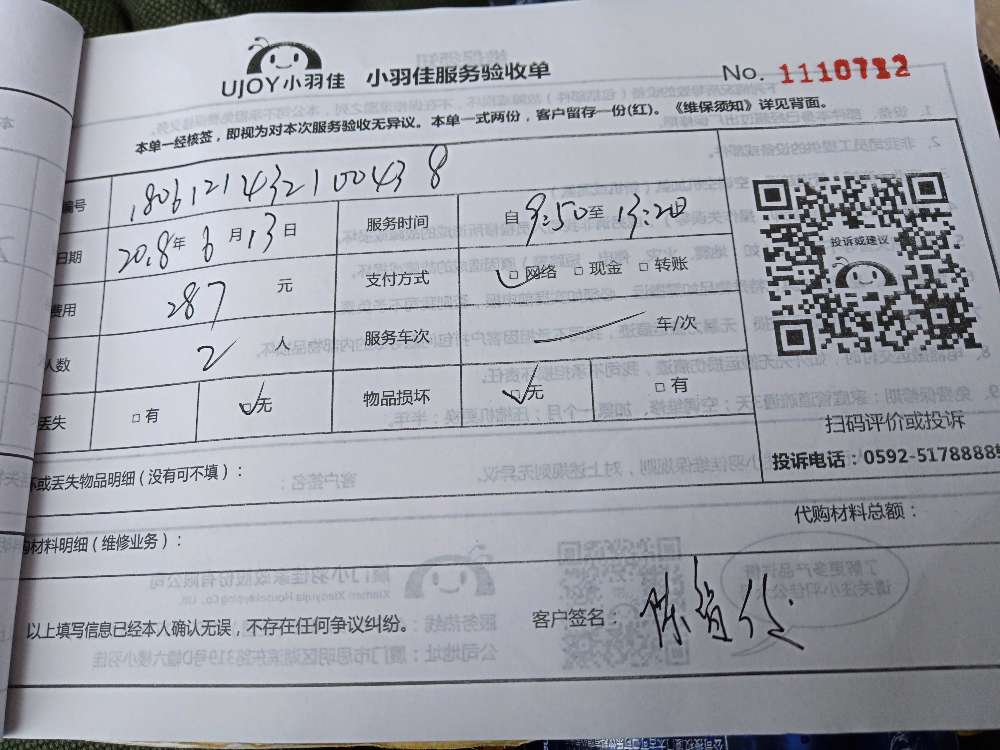 UJOY小羽佳 小羽佳服务验收单 No. 1110712
本单一经核签，即视为对本次服务验收无异议。本单一式两份，客户留存一份(红)。《维保须知》详见背面。
编号 180612143210043 8
日期 2018年6月13日 服务时间 自9:50至13:20
费用 287 元 支付方式 ☑网络 □现金 □转账
人数 2 人 服务车次 — 车/次
丢失 □有 ☑无 物品损坏 ☑无 □有
投诉或建议
扫码评价或投诉
投诉电话：0592-5178888
坏或丢失物品明细(没有可不填)：
购材料明细(维修业务)： 代购材料总额：
以上填写信息已经本人确认无误，不存在任何争议纠纷。 客户签名：陈